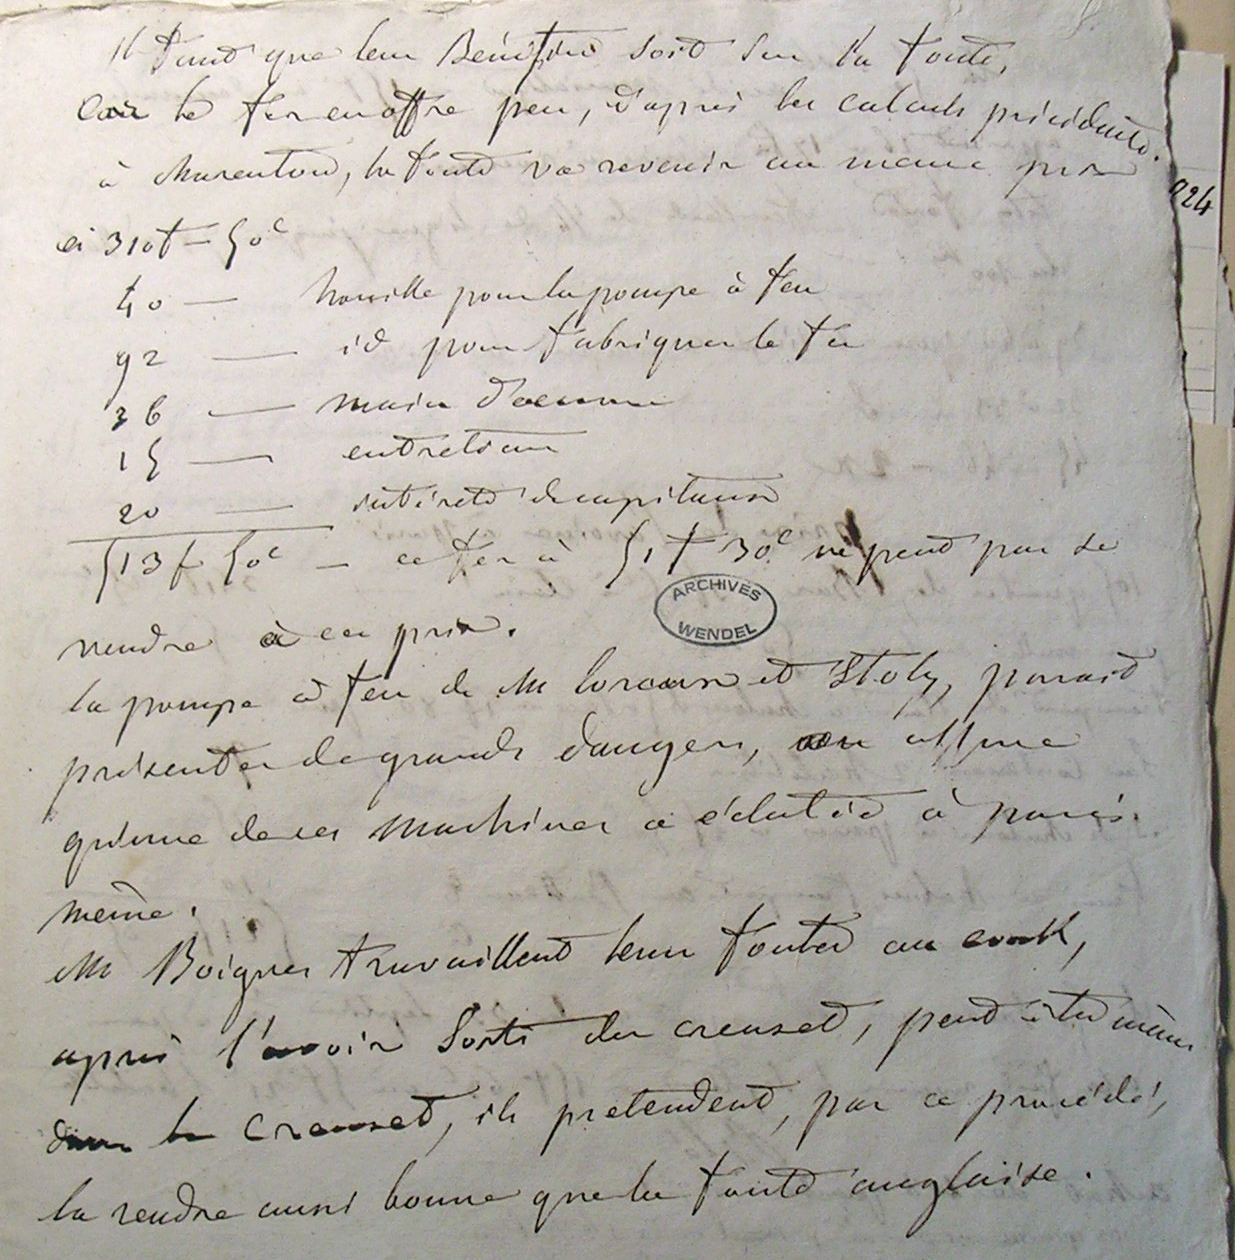 Il faut que leur Bénéfice soit sur la fonte,
Car le fer en offre peu, d'après les calculs précédents.
à Charenton, la fonte va revenir au meme prix
ci 310f — 50c
40 — houille pour la pompe à feu
92 — id pour fabriquer le fer
36 — main d'oeuvre
15 — entretien
20 — intérêts de capitaux
513f 50c — ce fer à 51f 30c ne peut pas se
vendre à ce prix.
la pompe à feu de M et Stoly, parait
présenter de grands dangers, on affirme
qu'une de ses Machines a éclatée à paris
même.
M Boigues travaillent leur fontes au cook,
après l'avoir Sorti du creuset, peut être même
dans le Creuset, ils pretendent, par ce procédé,
la rendre aussi bonne que la fonte anglaise.
ARCHIVES
WENDEL
924